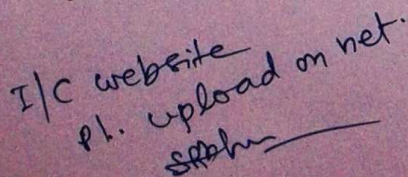 I/C website
Pl. upload on net.